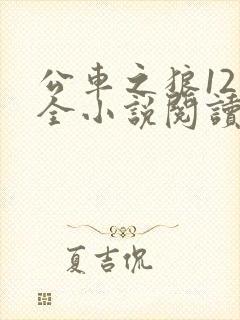 公車之狼12
全小說閱讀
夏吉侃